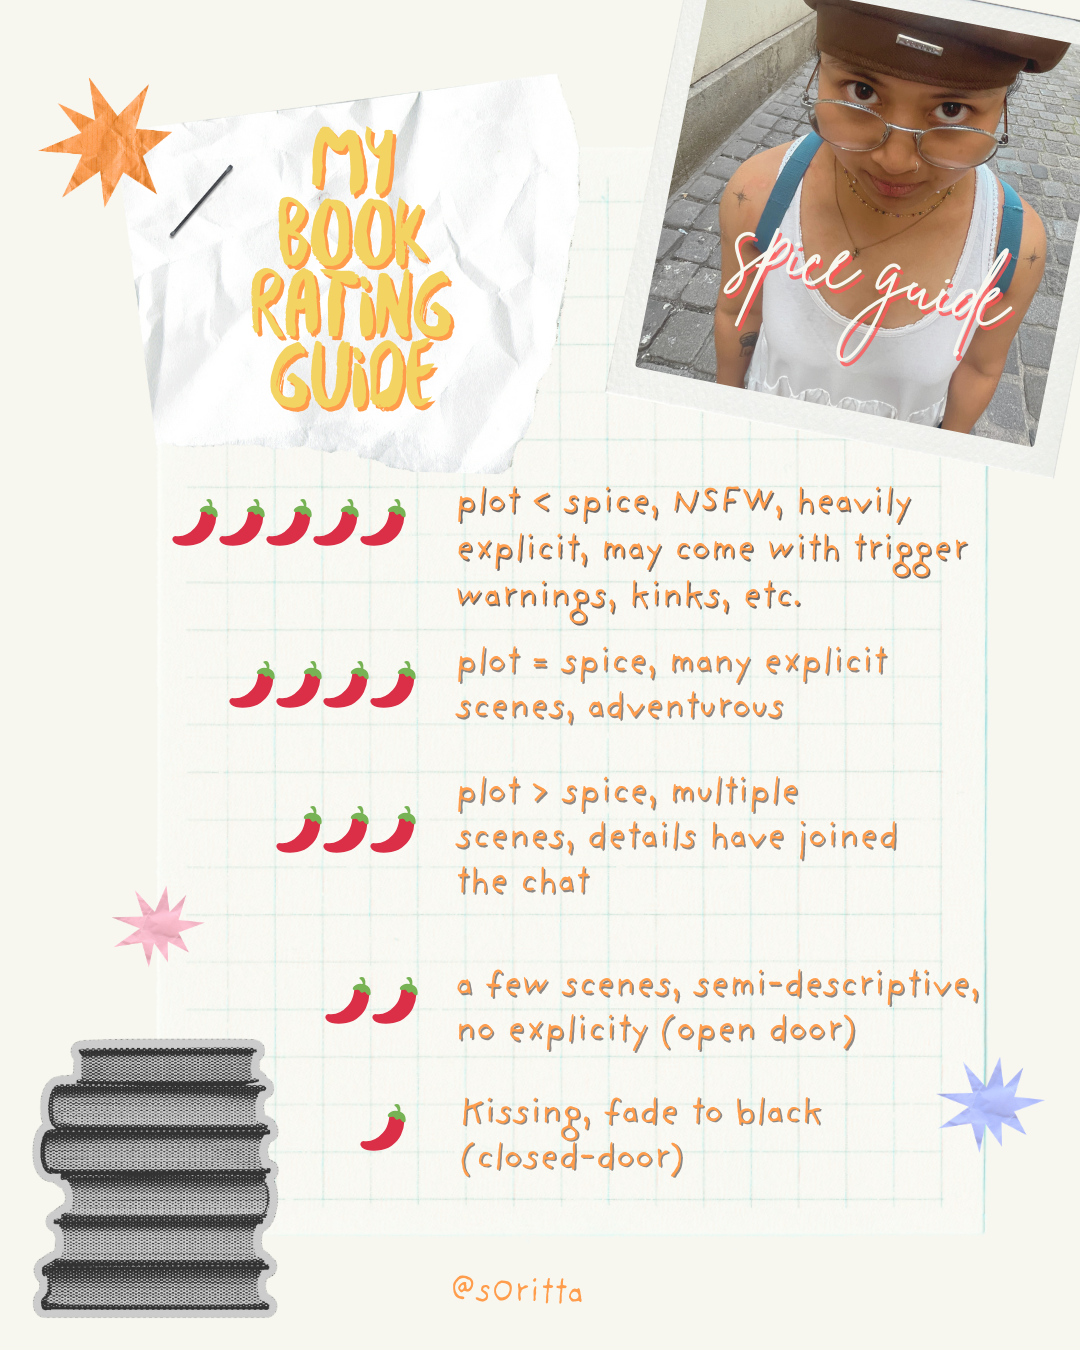 MY
BOOK
RATiNG
GUiDE
spice guide
plot < spice, NSFW, heavily
explicit, may come with trigger
warnings, kinks, etc.
plot = spice, many explicit
scenes, adventurous
plot > spice, multiple
scenes, details have joined
the chat
a few scenes, semi-descriptive,
no explicity (open door)
Kissing, fade to black
(closed-door)
@s0ritta